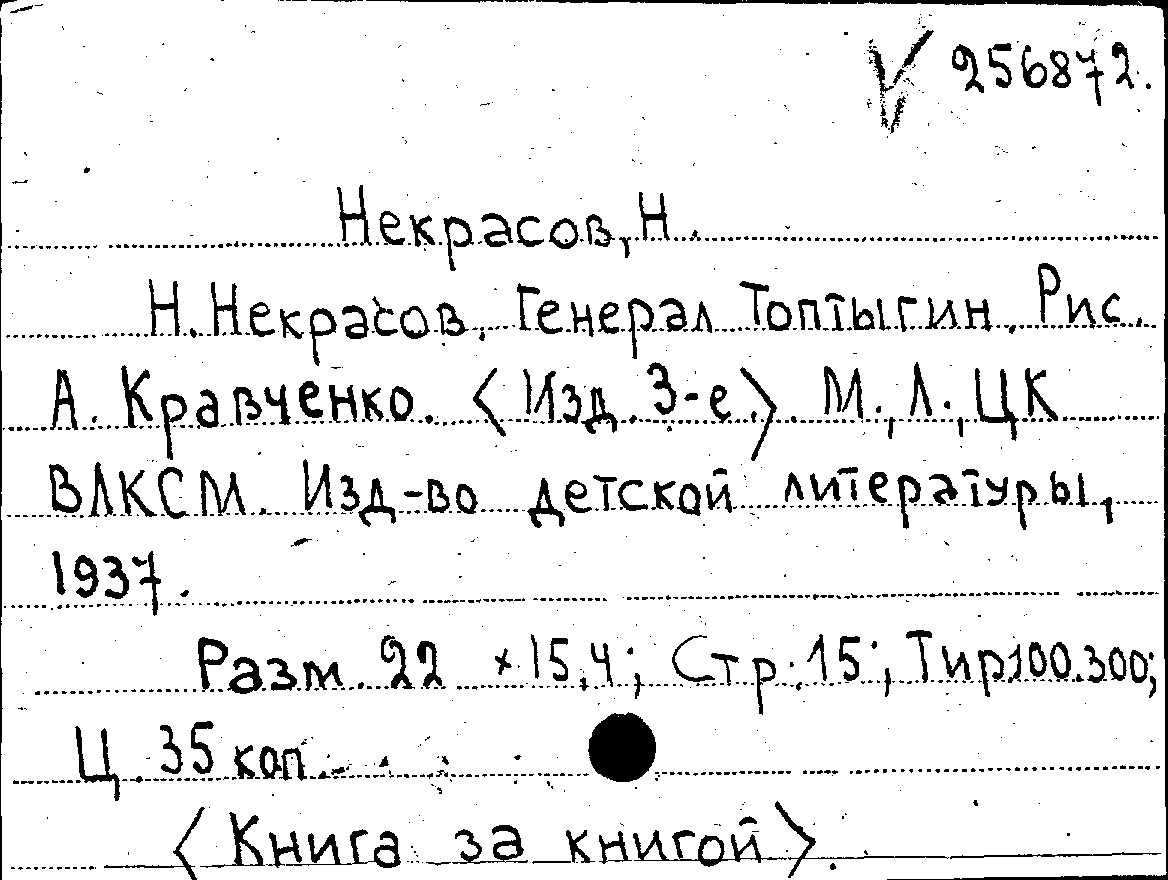 256872.
Некрасов, Н.
Н. Некрасов. Генерал Топтыгин. Рис.
А. Кравченко. <Изд. 3-е>. М., Л., ЦК
ВЛКСМ. Изд-во детской литературы,
1937.
Разм. 22 × 15,4; Стр. 15; Тир 100.300;
Ц. 35 коп.
<Книга за книгой>.